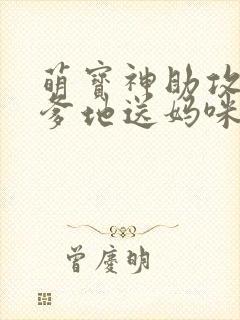 萌寶神助攻
爹地送媽咪
曾慶明